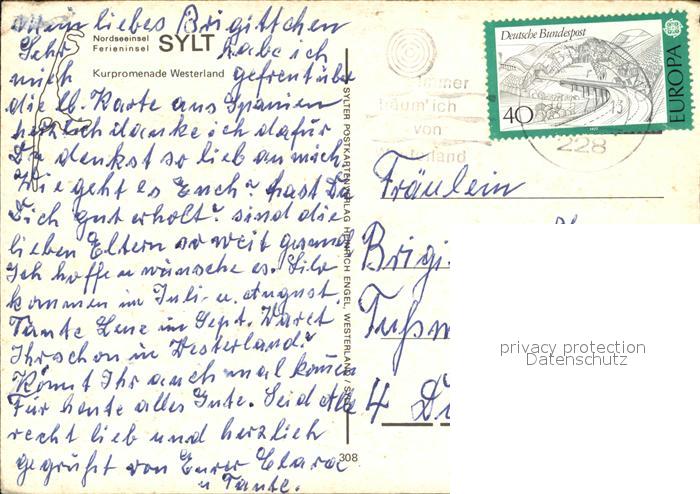 Mein liebes Brigittchen
Nordseeinsel
Ferieninsel SYLT
Kurpromenade Westerland
Sehr habe ich
mich gefreut über
die lb. Karte aus Spanien
herzlich danke ich dafür
Du denkst so lieb an mich.
Wie geht es Euch? hast Du
Dich gut erholt? sind die
lieben Eltern so weit gesund
Ich hoffe u wünsche es.
kommen im Juli u. August
Tante Lene im Sept. Waret
Ihr schon in Westerland?
Könnt Ihr auch mal kommen
Für heute alles Gute. Seid Alle
recht lieb und herzlich
gegrüßt von Eurer Clara
u Tante.
SYLTER POSTKARTENVERLAG HEINRICH ENGEL, WESTERLAND / SYLT
308
immer
träum' ich
von
Westerland
Deutsche Bundespost
40
EUROPA
13
228
Fräulein
Brigi
Fußw
4 Dü
privacy protection
Datenschutz